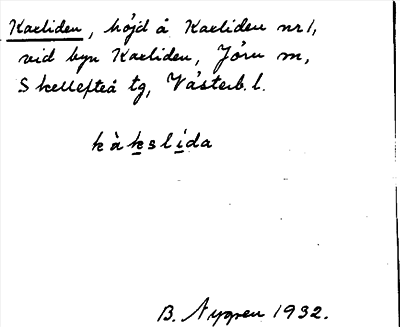 Kaxliden, höjd å Kaxliden nr 1,
vid byn Kaxliden, Jörn sn,
Skellefteå tg, Västerb. l.
kàkslída
B. Nygren 1932.